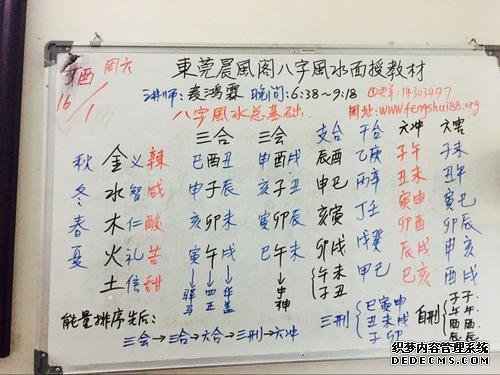 丁酉 周六
16/1
東莞晨風阁八字風水面授教材
讲师：麦鸿霖 晚间：6:38~9:18
14303497
八字風水总基础. 网址：www.fengshui88.org
三合 三会 支合 干合 六冲 六害
秋 金 义 辣 巳酉丑 申酉戌 辰酉 乙庚 子午 子未
冬 水 智 咸 申子辰 亥子丑 申巳 丙辛 丑未 丑午
春 木 仁 酸 亥卯未 寅卯辰 亥寅 丁壬 寅申 寅巳
夏 火 礼 苦 寅午戌 巳午未 卯戌 戊癸 卯酉 卯辰
土 信 甜 驿马 四正 华盖 中神 午未 甲己 辰戌 申亥
子丑 巳亥 酉戌
能量排序先后：
三会→三合→六合→三刑→六冲
三刑 寅巳申 丑未戌 子卯
自刑 子子. 午午. 酉酉. 辰辰